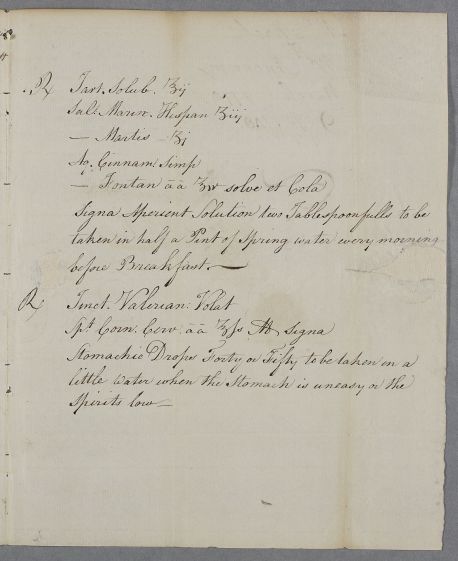 ℞ Tart. Solub. ʒij
Sal. Marin. Hispan ʒiij
— Martis — ʒj
Aq. Cinnam: Simp
— Fontan āā ℥iv solve et Cola
Signa Aperient Solution two Tablespoonfulls to be
taken in half a Pint of Spring water every morning
before Breakfast. —
℞ Tinct. Valerian: Volat
Spt. Corn. Cerv. āā ℥ſs M Signa
Stomachic Drops Forty or Fifty to be taken in a
little water when the Stomach is uneasy or the
Spirits low —